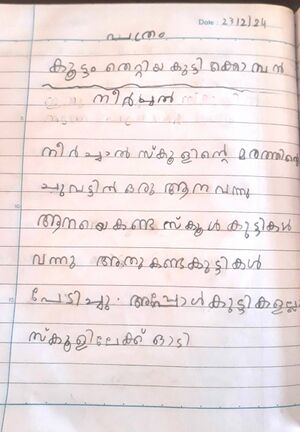 Date : 23/12/24
പത്രം
കൂട്ടം തെറ്റിയ കുട്ടി കൊമ്പൻ
നീർച്ചാൽ
നീർച്ചാൽ സ്കൂളിന്റെ മരത്തിന്റെ
ചുവട്ടിൽ ഒരു ആന വന്നു
ആനയെകണ്ട സ്കൂൾ കുട്ടികൾ
വന്നു അതുകണ്ടകുട്ടികൾ
പേടിച്ചു. അപ്പോൾകുട്ടികളെല്ല
സ്കൂളിലേക്ക് ഓടി